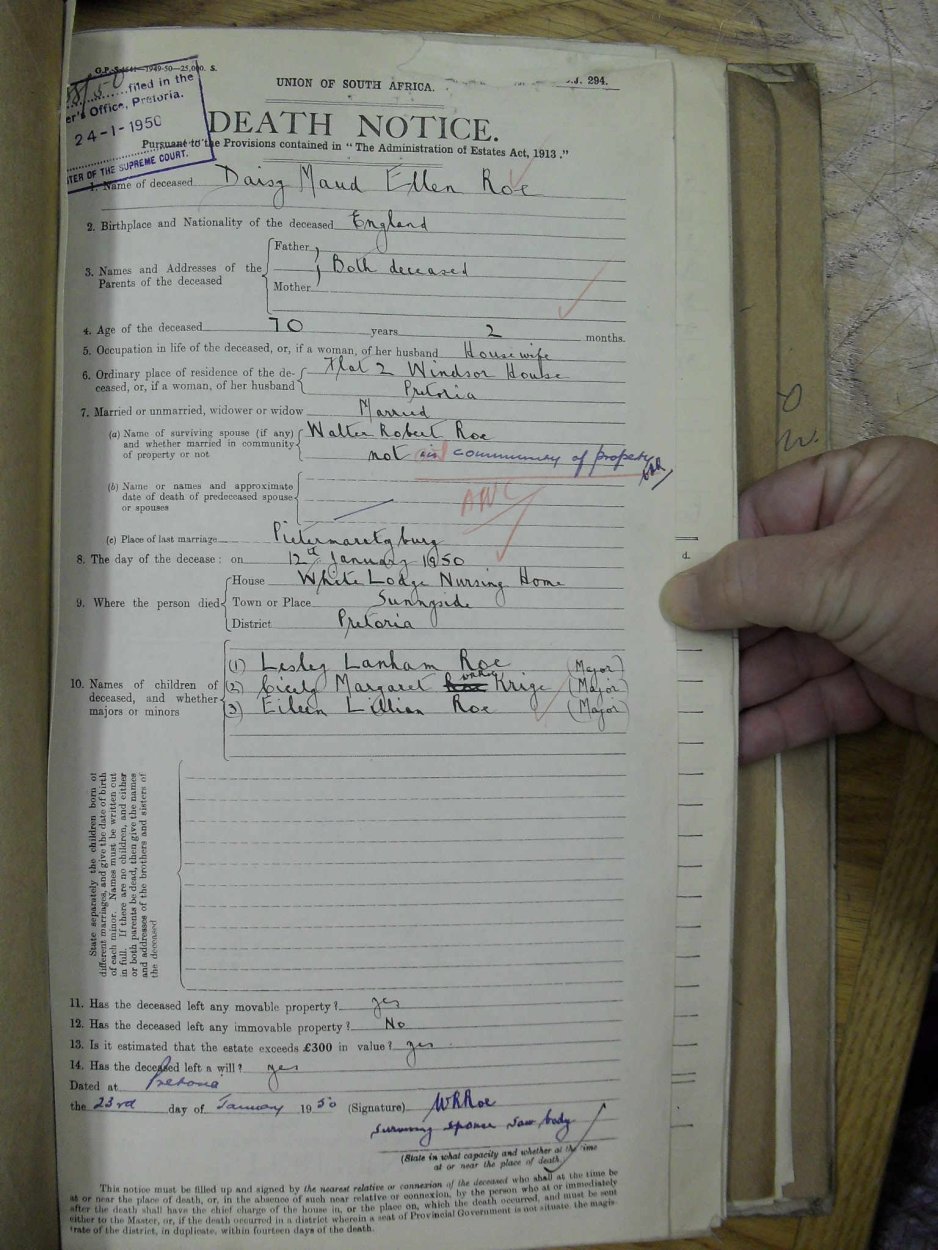 G.P.-S. 1949-50—25,000. S.
UNION OF SOUTH AFRICA.
J. 294.
filed in the
er's Office, Pretoria.
24-1-1950
TER OF THE SUPREME COURT.
DEATH NOTICE.
Pursuant to the Provisions contained in "The Administration of Estates Act, 1913."
1. Name of deceased Daisy Maud Ellen Roe
2. Birthplace and Nationality of the deceased England
3. Names and Addresses of the Parents of the deceased
Father
Both deceased
Mother
4. Age of the deceased 70 years 2 months.
5. Occupation in life of the deceased, or, if a woman, of her husband Housewife
6. Ordinary place of residence of the de- Flat 2 Windsor House
ceased, or, if a woman, of her husband Pretoria
7. Married or unmarried, widower or widow Married
(a) Name of surviving spouse (if any) Walter Robert Roe
and whether married in community
of property or not not in community of property
ANC
(b) Name or names and approximate
date of death of predeceased spouse
or spouses
(c) Place of last marriage Pietermaritzburg
8. The day of the decease: on 12th January 1950
9. Where the person died
House White Lodge Nursing Home
Town or Place Sunnyside
District Pretoria
10. Names of children of deceased, and whether majors or minors
(1) Lesley Lanham Roe (Major)
(2) Cicely Margaret Roe Krige (Major)
(3) Eileen Lillian Roe (Major)
State separately the children born of
different marriages, and give the date of birth
of each minor. Names must be written out
in full. If there are no children, and either
or both parents be dead, then give the names
and addresses of the brothers and sisters of
the deceased
11. Has the deceased left any movable property? yes
12. Has the deceased left any immovable property? No
13. Is it estimated that the estate exceeds £300 in value? yes
14. Has the deceased left a will? yes
Dated at Pretoria
the 23rd day of January 1950 (Signature) WRRoe
surviving spouse saw body
(State in what capacity and whether at the time
at or near the place of death
This notice must be filled up and signed by the nearest relative or connexion of the deceased who shall at the time be
at or near the place of death, or, in the absence of such near relative or connexion, by the person who at or immediately
after the death shall have the chief charge of the house in, or the place on, which the death occurred, and must be sent
either to the Master, or, if the death occurred in a district wherein a seat of Provincial Government is not situate, the magis-
trate of the district, in duplicate, within fourteen days of the death.